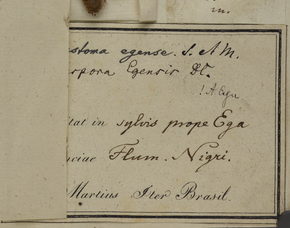 in.
stoma egense. S. A M.
rpora Egensis DC.
! A. Egu
tat in sylvis prope Ega
viae Flum. Nigri.
Martius Iter Brasil.